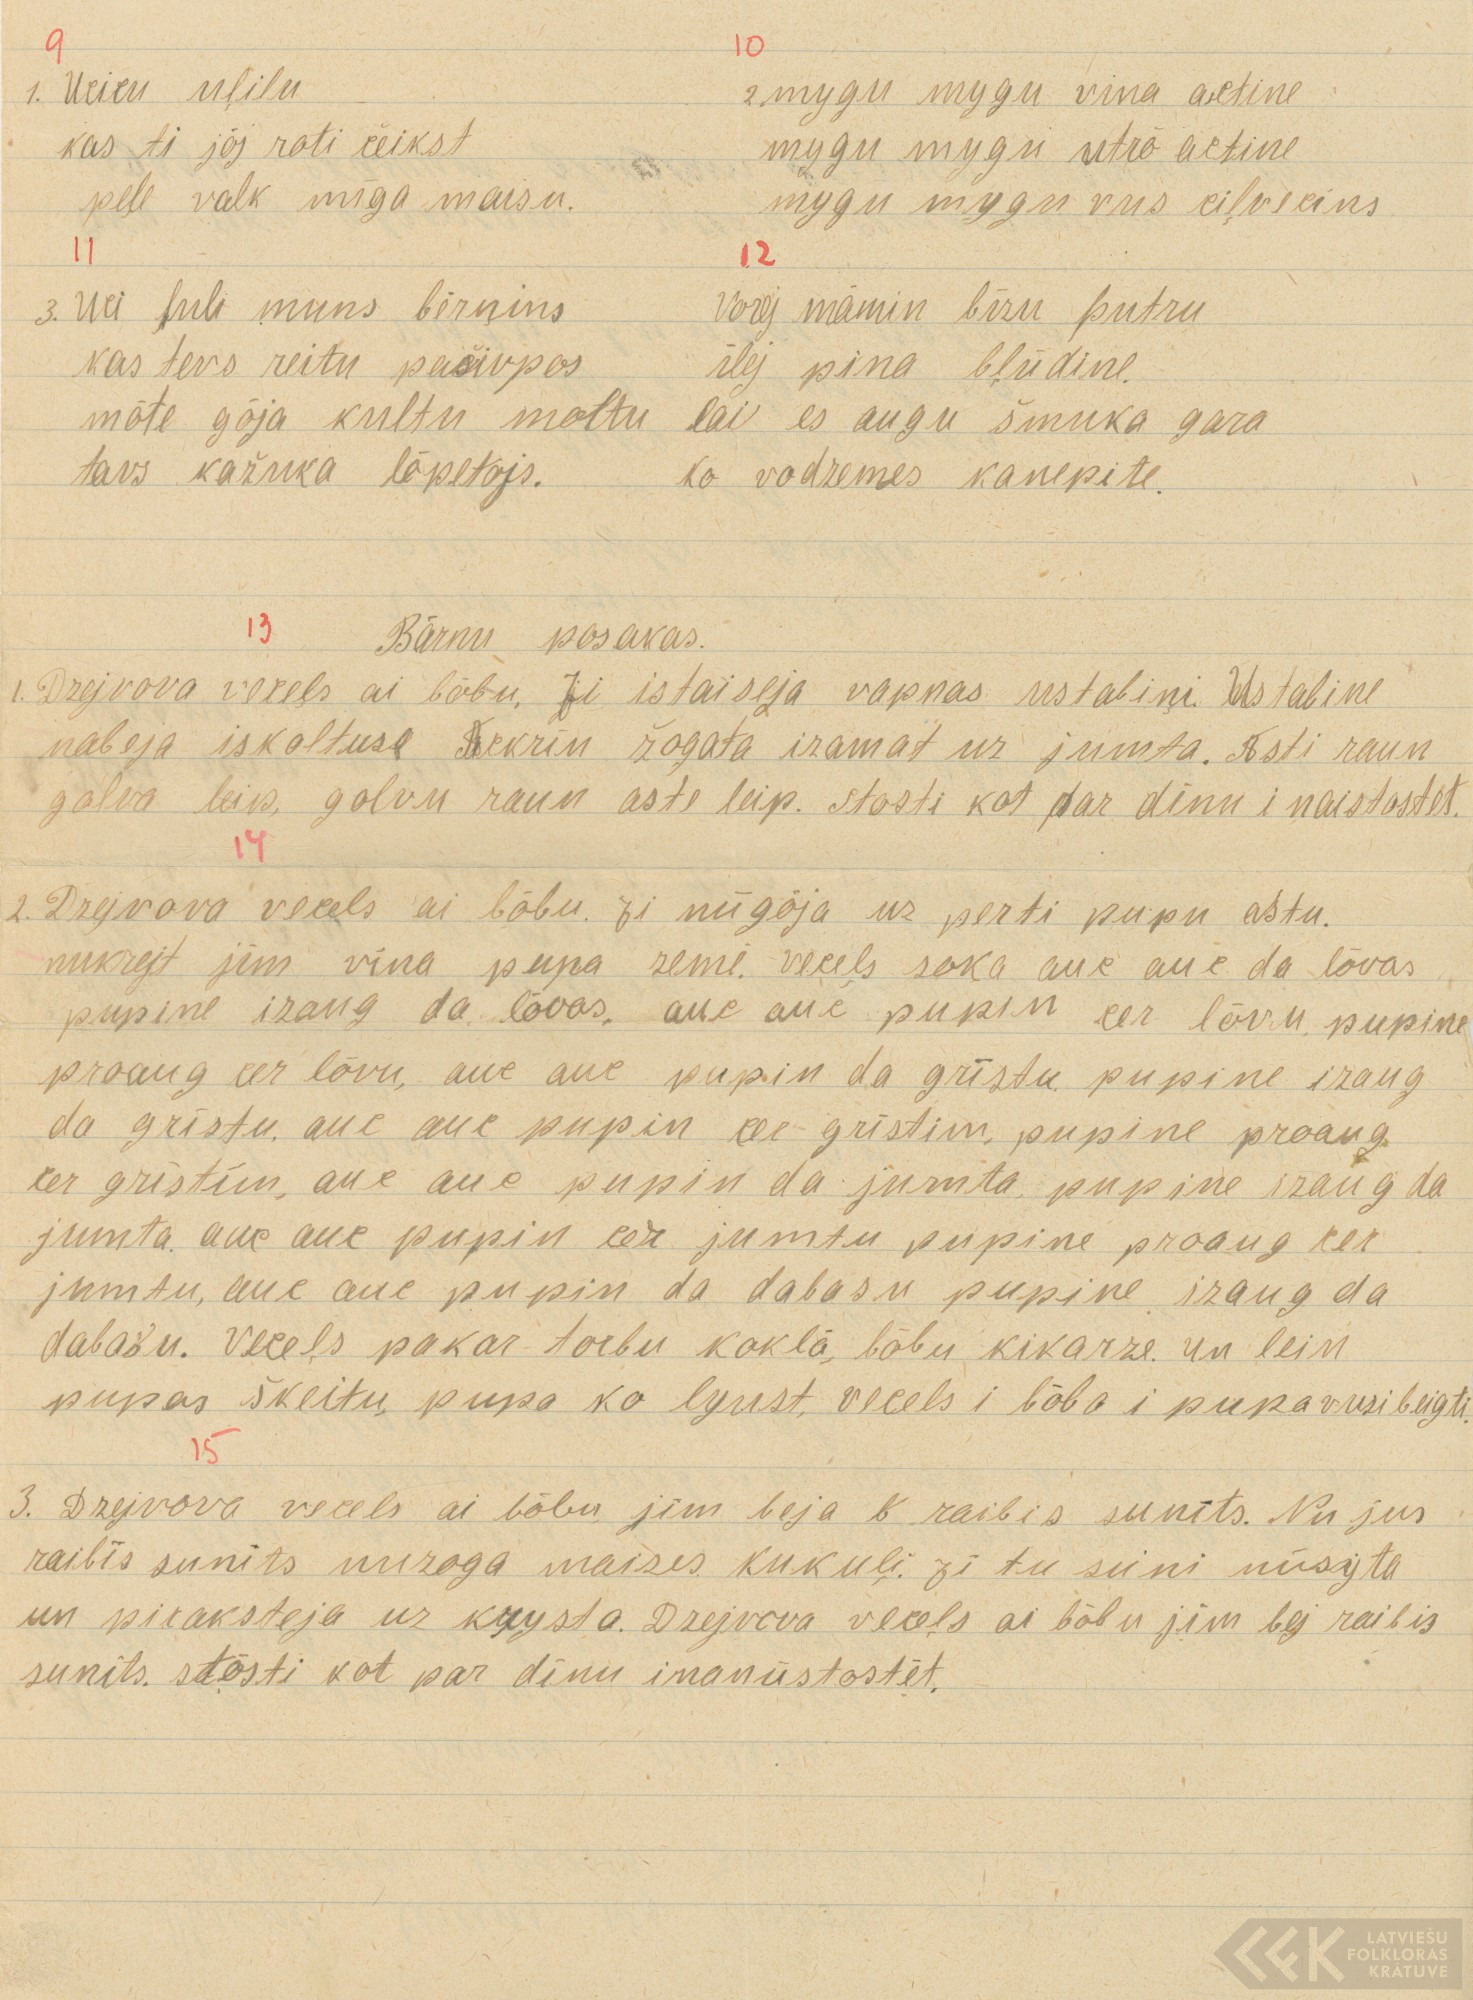 9
1. Ucicu uļilu
kas ti jōj rati čeikst
peļe valk mīga maisu.
10
2 mygu mygu vina actine
mygu mygu utrō actine
mygu mygu vus ciļvecins
11
3. Uci ļuli muns bērnins
kas tevs reitu pačivpos
mōte gōja kultu moltu
tavs kažuka lōpetojs.
12
Vorej māmin bīzu putru
ilej pina bļūdine.
lai es augu šmuka gara
ko vodzemes kanepite.
13
Bārnu posakas.
1. Dzejvova vecels ai bōbu, Ji istaiseja vapnas ustabini. Ustabine
nabeja iskaltuse žogata izamat uz jumta. Asti raun
golva leip, golvu raun aste leip. Stosti kot par dīnu i naistostet.
14
2. Dzejvova vecels ai bōbu. Ji nūgōja uz perti pupu astu.
nukrejt jim vīna pupa zemē. vecels soka auc auc da lōvas
pupine izaug da lōvas, auc auc pupin cer lōvu, pupine
proaug cer lōvu, auc auc pupin da grīstu pupine izaug
da grīstu. auc auc pupin cer grīstim, pupine proaug
cer grīstim, auc auc pupin da jumta pupine izaug da
jumta. auc auc pupin cer jumtu pupine proaug cer
jumtu, auc auc pupin da dabasu pupine izaug da
dabasu. Vecels pakar torbu koklā, bōbu kikarze. un lein
pupas škeitu, pupa ko lyust, vecels i bōba i pupa vusi beigti.
15
3. Dzejvova vecels ai bōbu jim beja raibis sunits. Nu jus
raibīs sunits nuzoga maizes kukuļi. Ji tu suni nūsyta
un picaksteja uz krysta. Dzejvova vecels ai bōbu jim bej raibis
sunīts. stōsti kot par dīnu inanūstostēt.
LATVIEŠU
FOLKLORAS
KRĀTUVE